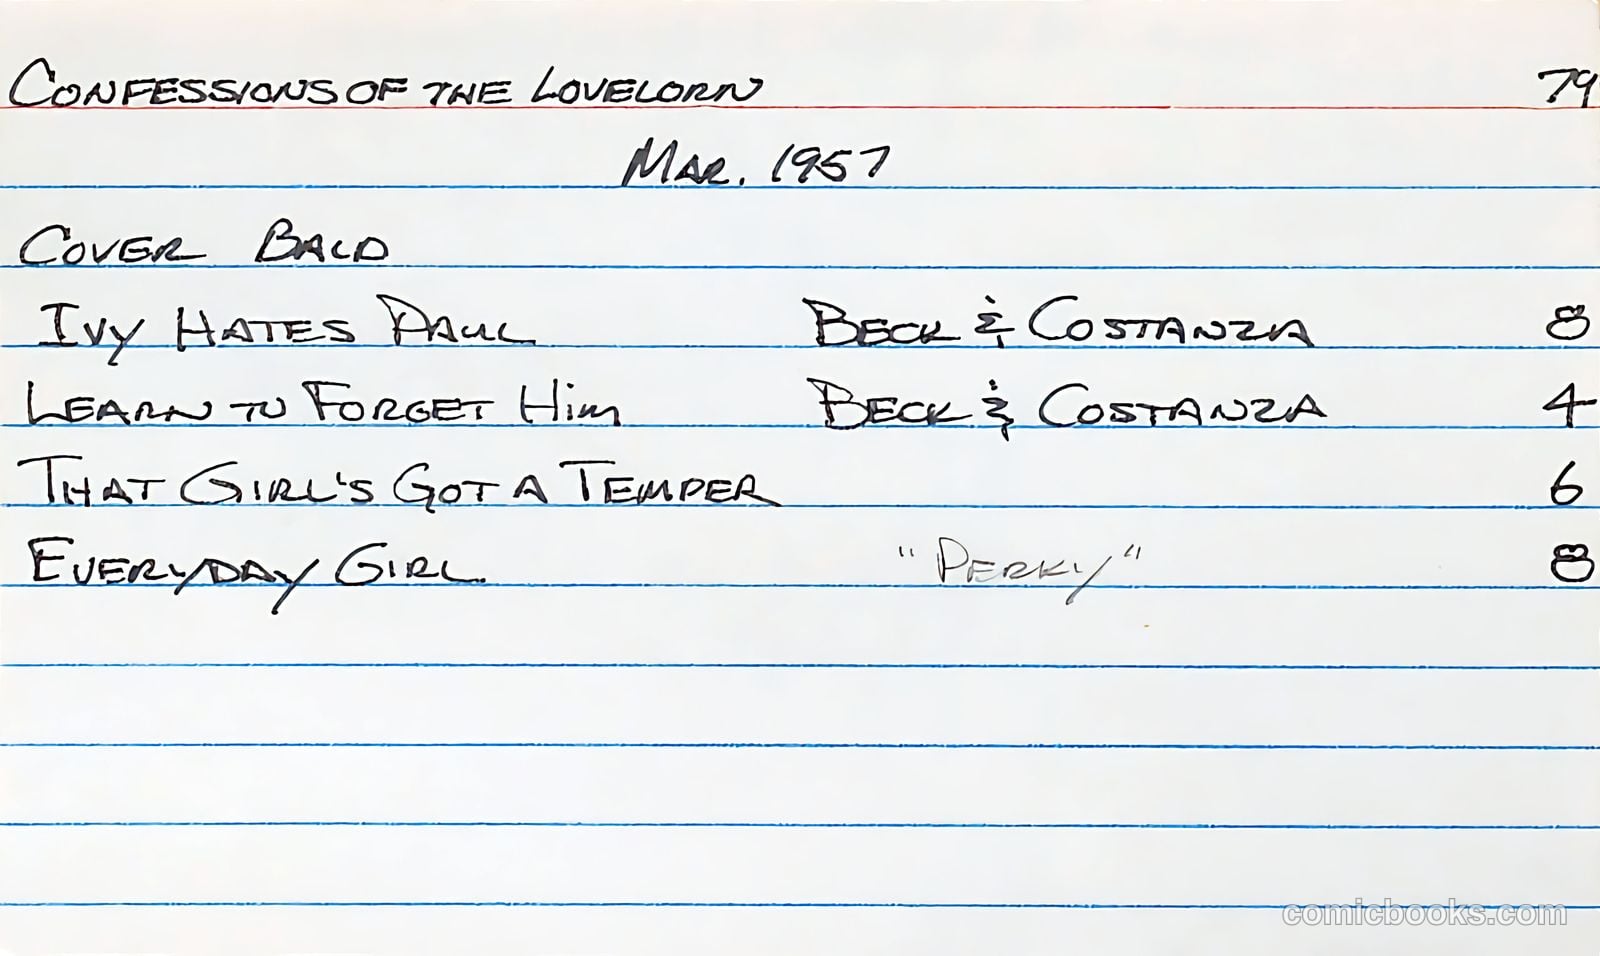 CONFESSIONS OF THE LOVELORN 79
MAR. 1957
COVER BALD
IVY HATES PAUL BECK & COSTANZA 8
LEARN TO FORGET HIM BECK & COSTANZA 4
THAT GIRL'S GOT A TEMPER 6
EVERYDAY GIRL "PERKY" 8
comicbooks.com